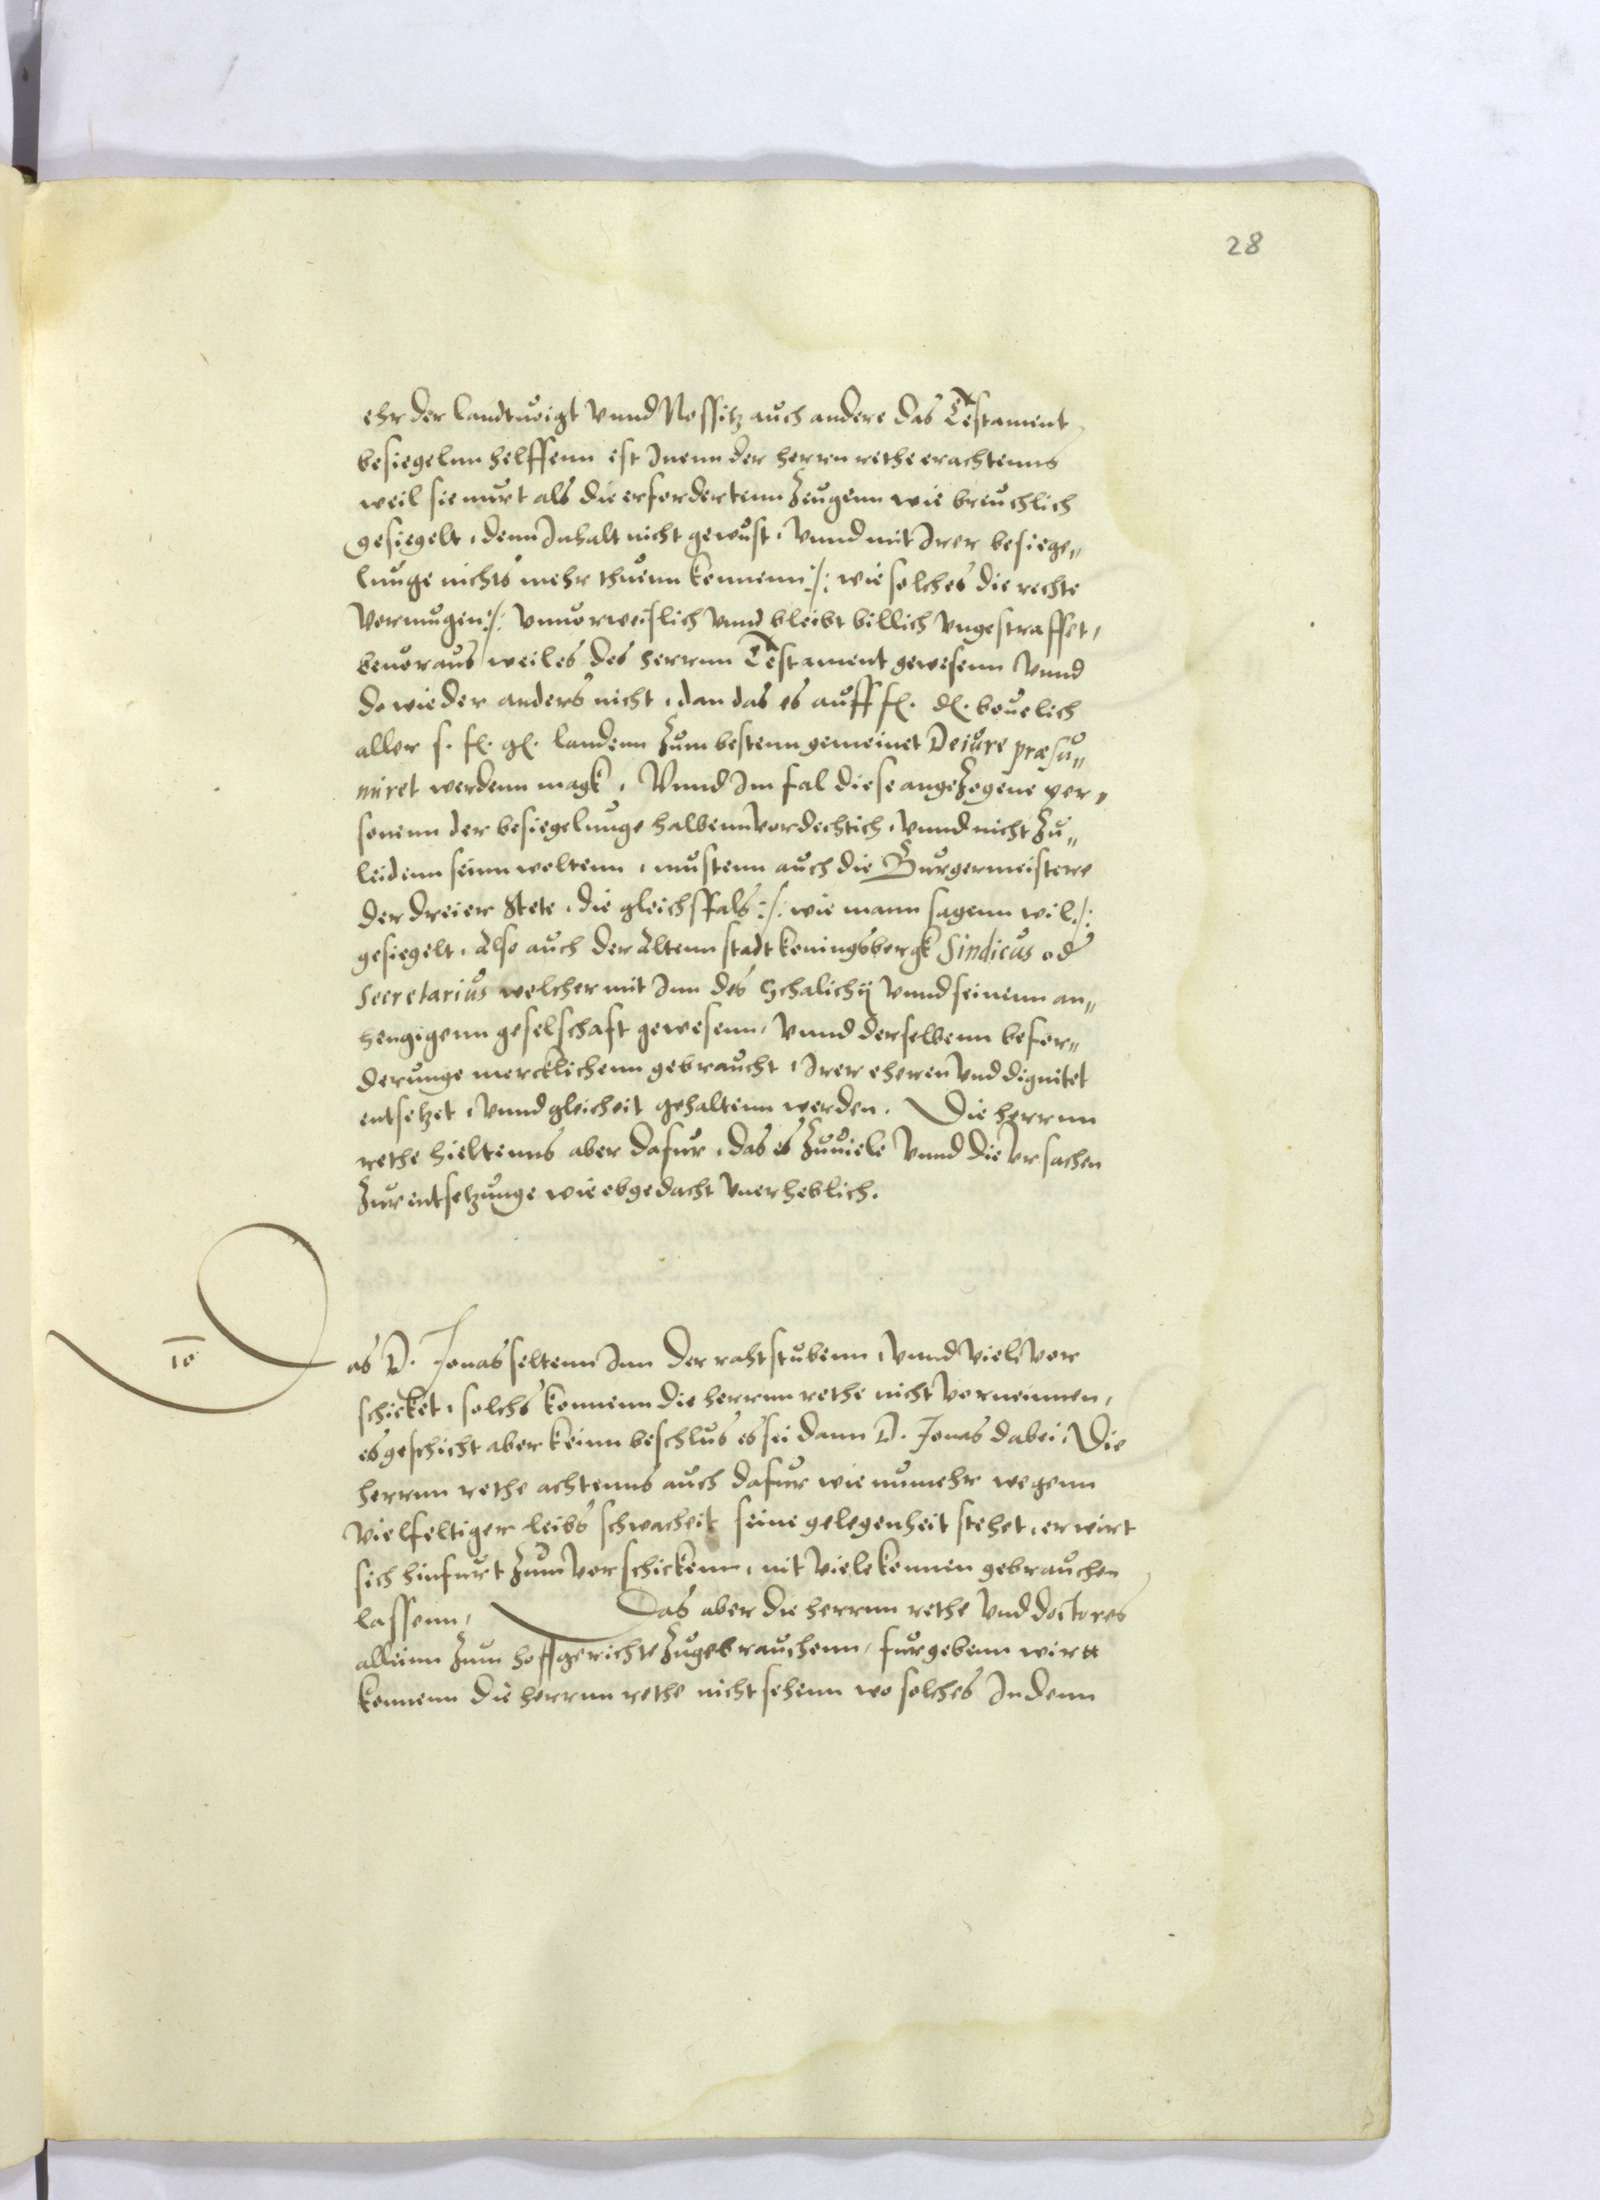 28
ehr der landtuoigt Vnnd Nossitz auch andere das Testament
besiegelnn helffenn ist Inenn der herrn rethe erachtenns
weil sie nurt als die erfordertenn Zeugenn wie breuchlich
gesiegelt, denn Inhalt nicht gewust, Vnnd mit Irer besiege„
lunge nichts mehr thuenn konnenn :/: wie solches die rechte
Vermugen :/: Vnuorweislich Vnnd bleibt billich Vngestraffet,
beuoraus weil es des herrnn Testament gewesenn Vnnd
do wieder anders nicht, dan das es auff fl. dl. beuelich
aller s. fl. gl. landenn Zum bestenn gemeinet De iure præsu„
miret werdenn magk, Vnnd Im fal diese angeZogene per„
sonenn der besiegelunge halbenn Vordechtich, Vnnd nicht Zu„
leidenn seinn woltenn, mustenn auch die Burgermeistere
der dreier Stete, die gleichsfals :/: wie mann sagenn wil :/:
gesiegelt, Also auch der Altenn stadt konningsbergk Sindicus od
Secretarius welcher mit Inn des Schalichij Vnnd seinenn an„
hengigenn geselschaft gewesenn, Vnnd derselbenn befor„
derunge mercklichenn gebraucht, Irer eheren Vnd dignitet
entsetzet, Vnnd gleicheit gehaltenn werden. Die herrnn
rethe hieltenns aber dafur, das es Zuuiele Vnnd die Vrsachen
Zur entsetzunge wie obgedacht Vnerheblich.
10
Das D. Jonas seltenn Inn der rahtstubenn, Vnnd viel Vor
schicket, solchs konnenn die herrnn rethe nicht Vorneinnen,
es geschicht aber keinn beschlus es sei dann D. Jonas dabei, Die
herrnn rethe achtenns auch dafur wie numehr wegenn
Vielfeltiger leibs schwacheit seine gelegenheit stehet, er wirt
sich hinfurt Zum Vorschickenn, nit Viele konnen gebrauchen
lassenn, Das aber die herrnn rethe Vnd doctores
alleinn Zum hoffgerichte Zugebrauchenn, furgebenn wirtt
konnenn die herrnn rethe nicht sehenn wo solches In denn